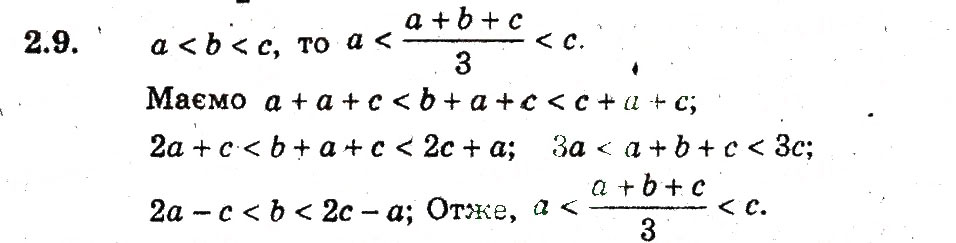 2.9. a < b < c, то a < (a + b + c)/3 < c.
Маємо a + a + c < b + a + c < c + a + c;
2a + c < b + a + c < 2c + a; 3a < a + b + c < 3c;
2a − c < b < 2c − a; Отже, a < (a + b + c)/3 < c.